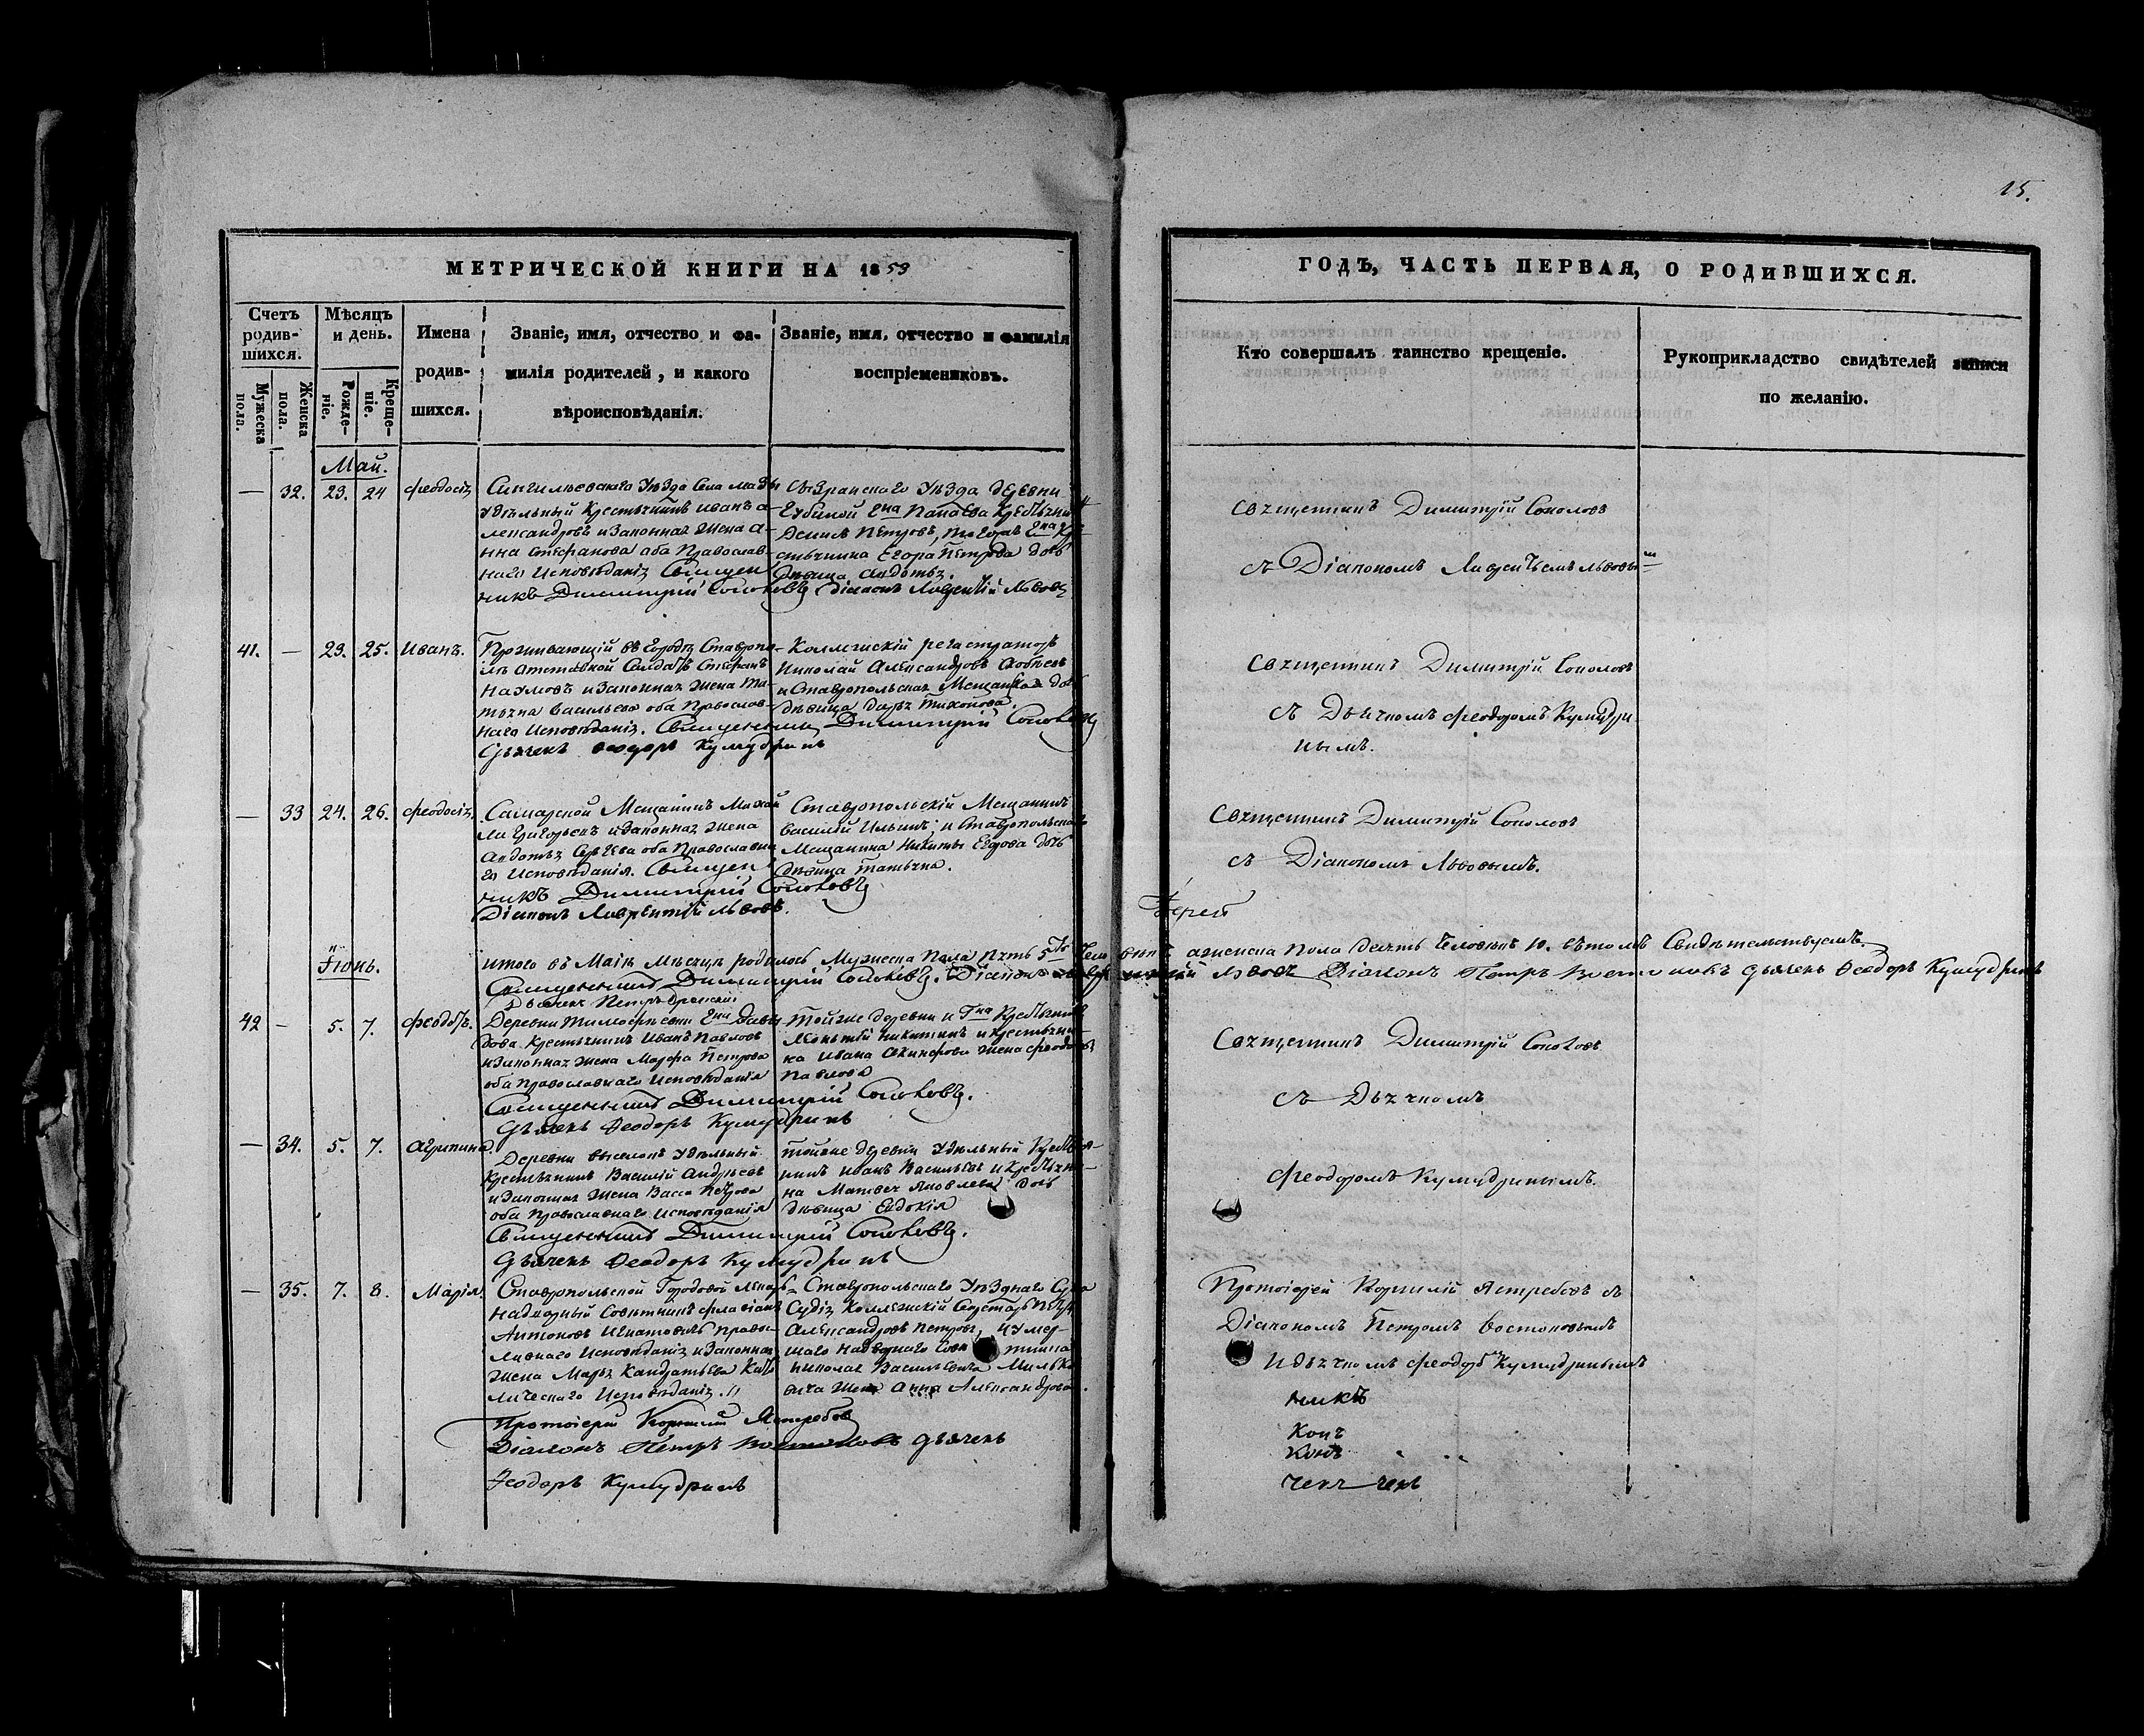 15.
МЕТРИЧЕСКОЙ КНИГИ НА 1853
ГОДЪ, ЧАСТЬ ПЕРВАЯ, О РОДИВШИХСЯ.
Счетъ родившихся.
Мужеска пола.
Женска пола.
Мѣсяцъ и день.
Рожденіе.
Крещеніе.
Имена родившихся.
Званіе, имя, отчество и фамилія родителей, и какого вѣроисповѣданія.
Званіе, имя, отчество и фамилія воспріемниковъ.
Кто совершалъ таинство крещеніе.
Рукоприкладство свидѣтелей записи по желанію.
Май.
— 32. 23. 24 Феодосія
Сингилѣевскаго Уѣзда Села Мазы
Удѣльный Крестьянинъ Иванъ А-
лександровъ и Законная Жена А-
нна Стефанова оба Православ-
наго Исповѣданія Священ
никъ Димитрій Соколовъ Діаконъ Лаврентій Львовъ
Сызранскаго Уѣзда деревни
Губиной Гна Попова Крестьянинъ
Петровъ, тогожъ Гна Кре-
стьянина Егора Петрова дочь
Дѣвица Авдотья.
Священникъ Димитрій Соколовъ
съ Діакономъ Лаврентьемъ Львовымъ
41. — 23. 25. Иванъ.
Проживающій въ Городѣ Ставропо-
лѣ Отставной Солдатъ Стефанъ
Наумовъ и Законная Жена Та-
тьяна Васильева оба Православ-
наго Исповѣданія. Священникъ Димитрій Соколовъ
Дьячекъ Ѳеодоръ Кумудринъ
Коллежскій регастраторъ
Николай Александровъ
и Ставропольская Мещанская дочь
дѣвица Дарья Тихонова.
Священникъ Димитрій Соколовъ
съ Дьячкомъ Феодоромъ Кумудри-
нымъ.
— 33 24. 26. Феодосія
Самарской Мещанинъ Михай
ла Григорьевъ и Законная Жена
Авдотья Сергѣева оба Православна
го Исповѣданія. Священ
никъ Димитрій Соколовъ
Діаконъ Лаврентій Львовъ.
Ставропольскій Мещанинъ
Василій Ильинъ, и Ставропольскаго
Мещанина Никиты Егорова дочь
Дѣвица Татьяна.
Священникъ Димитрій Соколовъ
съ Діакономъ Львовымъ.
Іерей
Итого въ Маіѣ Мѣсяцѣ родилось Мужеска Пола Пять 5ть человѣкъ а женска пола десять Человѣкъ 10. вѣтомъ Свидѣтельствуемъ.
Священникъ Димитрій Соколовъ. Діаконъ Лаврентій Львовъ Діаконъ Петръ Востоковъ Дьячекъ Ѳеодоръ Кумудринъ
Іюнь.
42 — 5. 7. Феодотъ.
Деревни Тимофѣевки Гна Давы-
дова Крестьянинъ Иванъ Павловъ
и Законная Жена Марфа Петрова
оба Православнаго Исповѣданія
Священникъ Димитрій Соколовъ.
Дьячекъ Ѳеодоръ Кумудринъ
Тойже деревни и Гна Крестьянинъ
Леонтій Никитинъ и крестьяни-
на Ивана Жена
Павлова
Священникъ Димитрій Соколовъ
съ Дьячкомъ
Феодоромъ Кумудринымъ.
— 34. 5. 7. Агрипина.
Деревни Выселокъ Удѣльный
Крестьянинъ Василій Андреевъ
и Законная Жена Васса Петрова
оба Православнаго Исповѣданія
Священникъ Димитрій Соколовъ.
Дьячекъ Ѳеодоръ Кумудринъ
Тойже деревни Удѣльный Крестья-
нинъ Иванъ Васильевъ и Крестьяни-
на Матвея Яковлева дочь
дѣвица Евдокія
— 35. 7. 8. Марія.
Ставропольской Городовой Лекарь
Надворный Совѣтникъ Флавіанъ
Антоновъ Игнатовичъ Право-
лавнаго Исповѣданія и Законная
Жена Марья Кондратьева Като
лическаго Исповѣданія.
Протоіерей Корнилій Ястребовъ
Діаконъ Петръ Востоковъ Дьячекъ
Ѳеодоръ Кумудринъ
Ставропольскаго Уѣзднаго Суда
Судія Коллежскій Секретарь Петръ
Александровъ Петровъ, и умер-
шаго Надворнаго Совѣтника
Николая Васильевича
Жена Анна Александрова.
Протоіерей Корнилій Ястребовъ съ
Діакономъ Петромъ Востоковымъ
и дьячкомъ Феодоромъ Кумудринымъ
никъ
Конъ
Конъ
чекъ чекъ